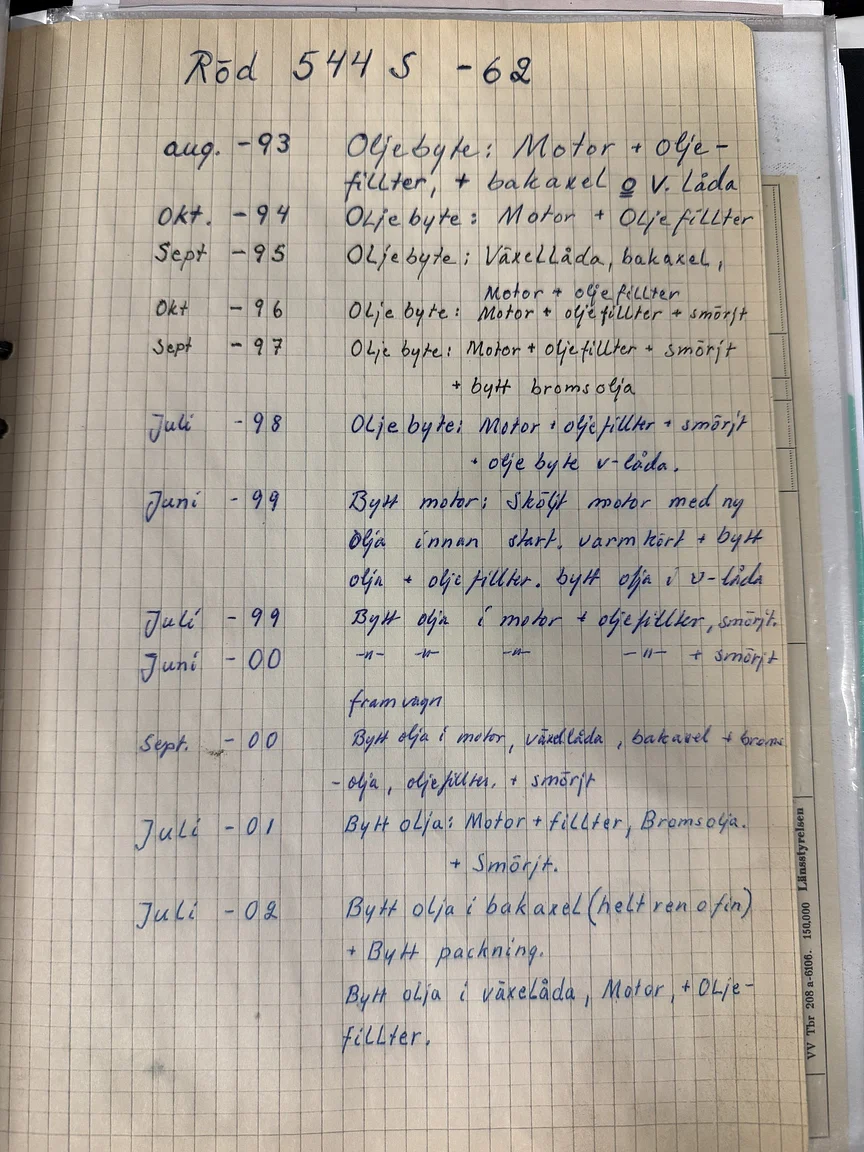 Röd 544 S -62
aug. -93 Oljebyte: Motor + olje-
fillter, + bakaxel o v. låda
Okt. -94 Oljebyte: Motor + Oljefillter
Sept -95 Oljebyte: Växellåda, bakaxel,
Motor + oljefillter
Okt -96 Oljebyte: Motor + oljefillter + smörjt
Sept -97 Oljebyte: Motor + oljefillter + smörjt
+ bytt bromsolja
Juli -98 Oljebyte: Motor + oljefillter + smörjt
+ oljebyte v-låda.
Juni -99 Bytt motor: Sköljt motor med ny
olja innan start. varmkört + bytt
olja + oljefillter. bytt olja i v-låda
Juli -99 Bytt olja i motor + oljefillter, smörjt.
Juni -00 -"- -"- -"- -"- + smörjt
framvagn
Sept. -00 Bytt olja i motor, växellåda, bakaxel + broms
-olja, oljefillter. + smörjt
Juli -01 Bytt olja: Motor + fillter, Bromsolja.
+ Smörjt.
Juli -02 Bytt olja i bakaxel (helt ren o fin)
+ Bytt packning.
Bytt olja i växelåda, Motor, + Olje-
fillter.
VV Tbr 208 a-6106. 150.000 Länsstyrelsen